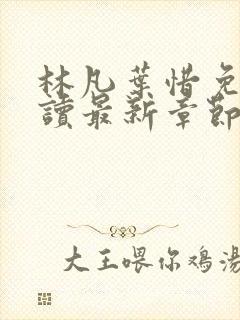 林凡葉惜免
讀最新章節
大王喂你鸡湯